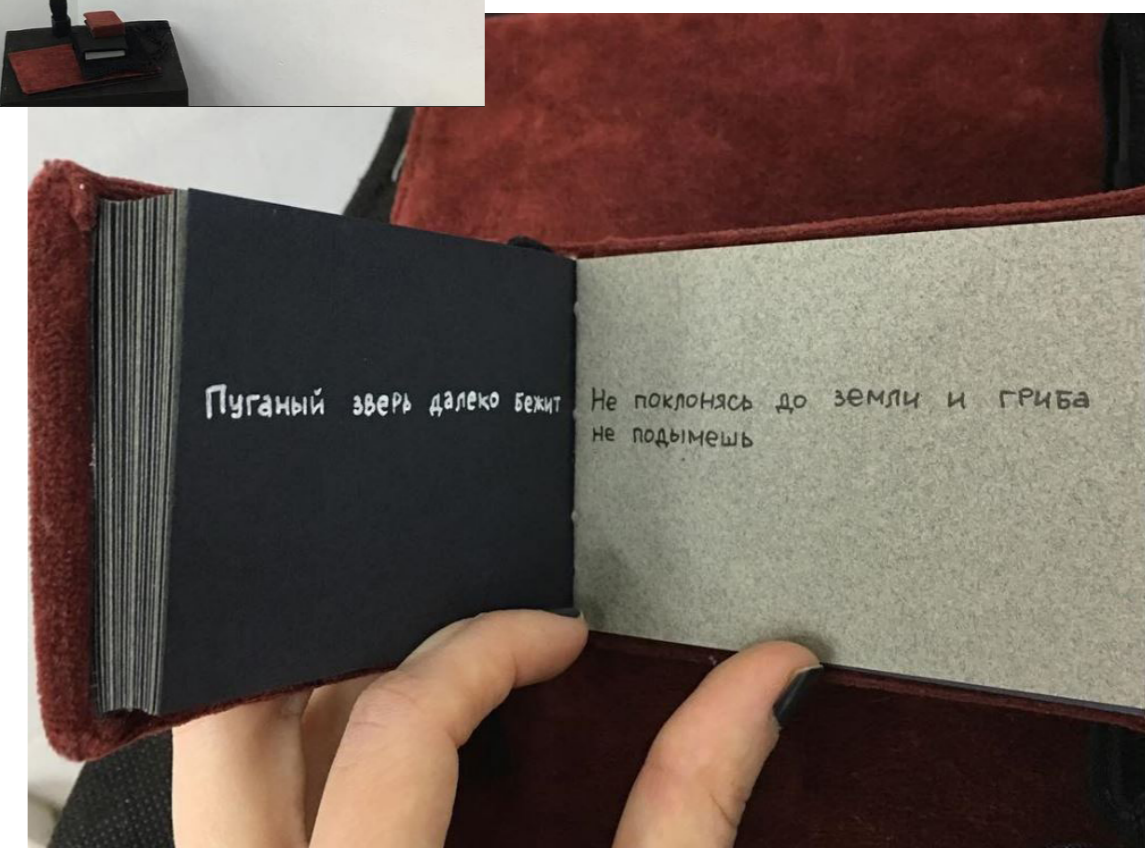 Пуганый зверь далеко бежит
Не поклонясь до земли и гриба
не подымешь